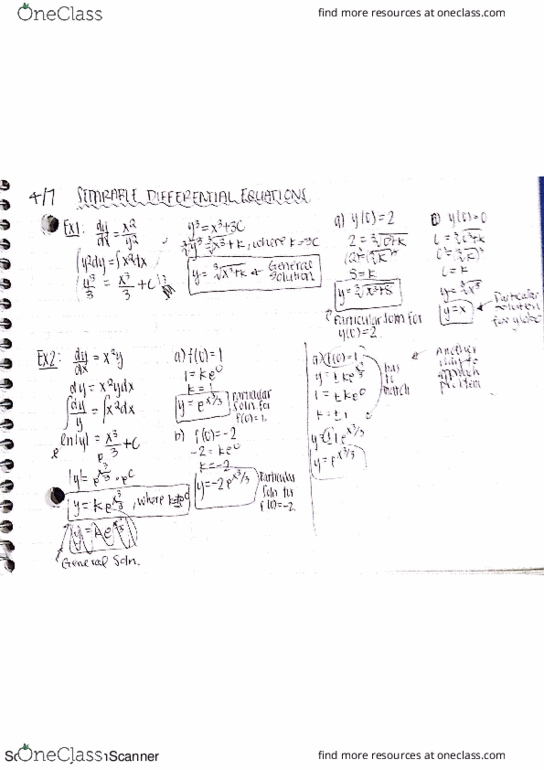 OneClass
find more resources at oneclass.com
4/7 SEPARABLE DIFFERENTIAL EQUATIONS
Ex1: dy/dx = x²/y²
∫y²dy = ∫x²dx
y³/3 = x³/3 + C
y³ = x³+3C
∛y³ = ∛x³+k, where k=3C
y = ∛x³+k ← General Solution
a) y(0)=2
2 = ∛0+k
8=k
y = ∛x³+8
Particular soln for y(0)=2.
b) y(0)=0
y = ∛x³
y=x
Particular solution for y(0)=0
Ex2: dy/dx = x²y
dy = x²ydx
∫dy/y = ∫x²dx
ln|y| = x³/3 + C
|y| = e^x³/3 · e^C
y = ke^x³/3, where k≠0
General Soln.
a) f(0)=1
1 = ke⁰
k=1
y = e^x³/3
Particular Soln for f(0)=1.
b) f(0)=-2
-2 = ke⁰
k=-2
y=-2e^x³/3
Particular Soln for f(0)=-2.
a) f(0)=1
y = ± ke^x³/3
1 = ±ke⁰
k = ±1
y = e^x³/3
has to match
Another way to approach problem
OneClass
Scanner
find more resources at oneclass.com